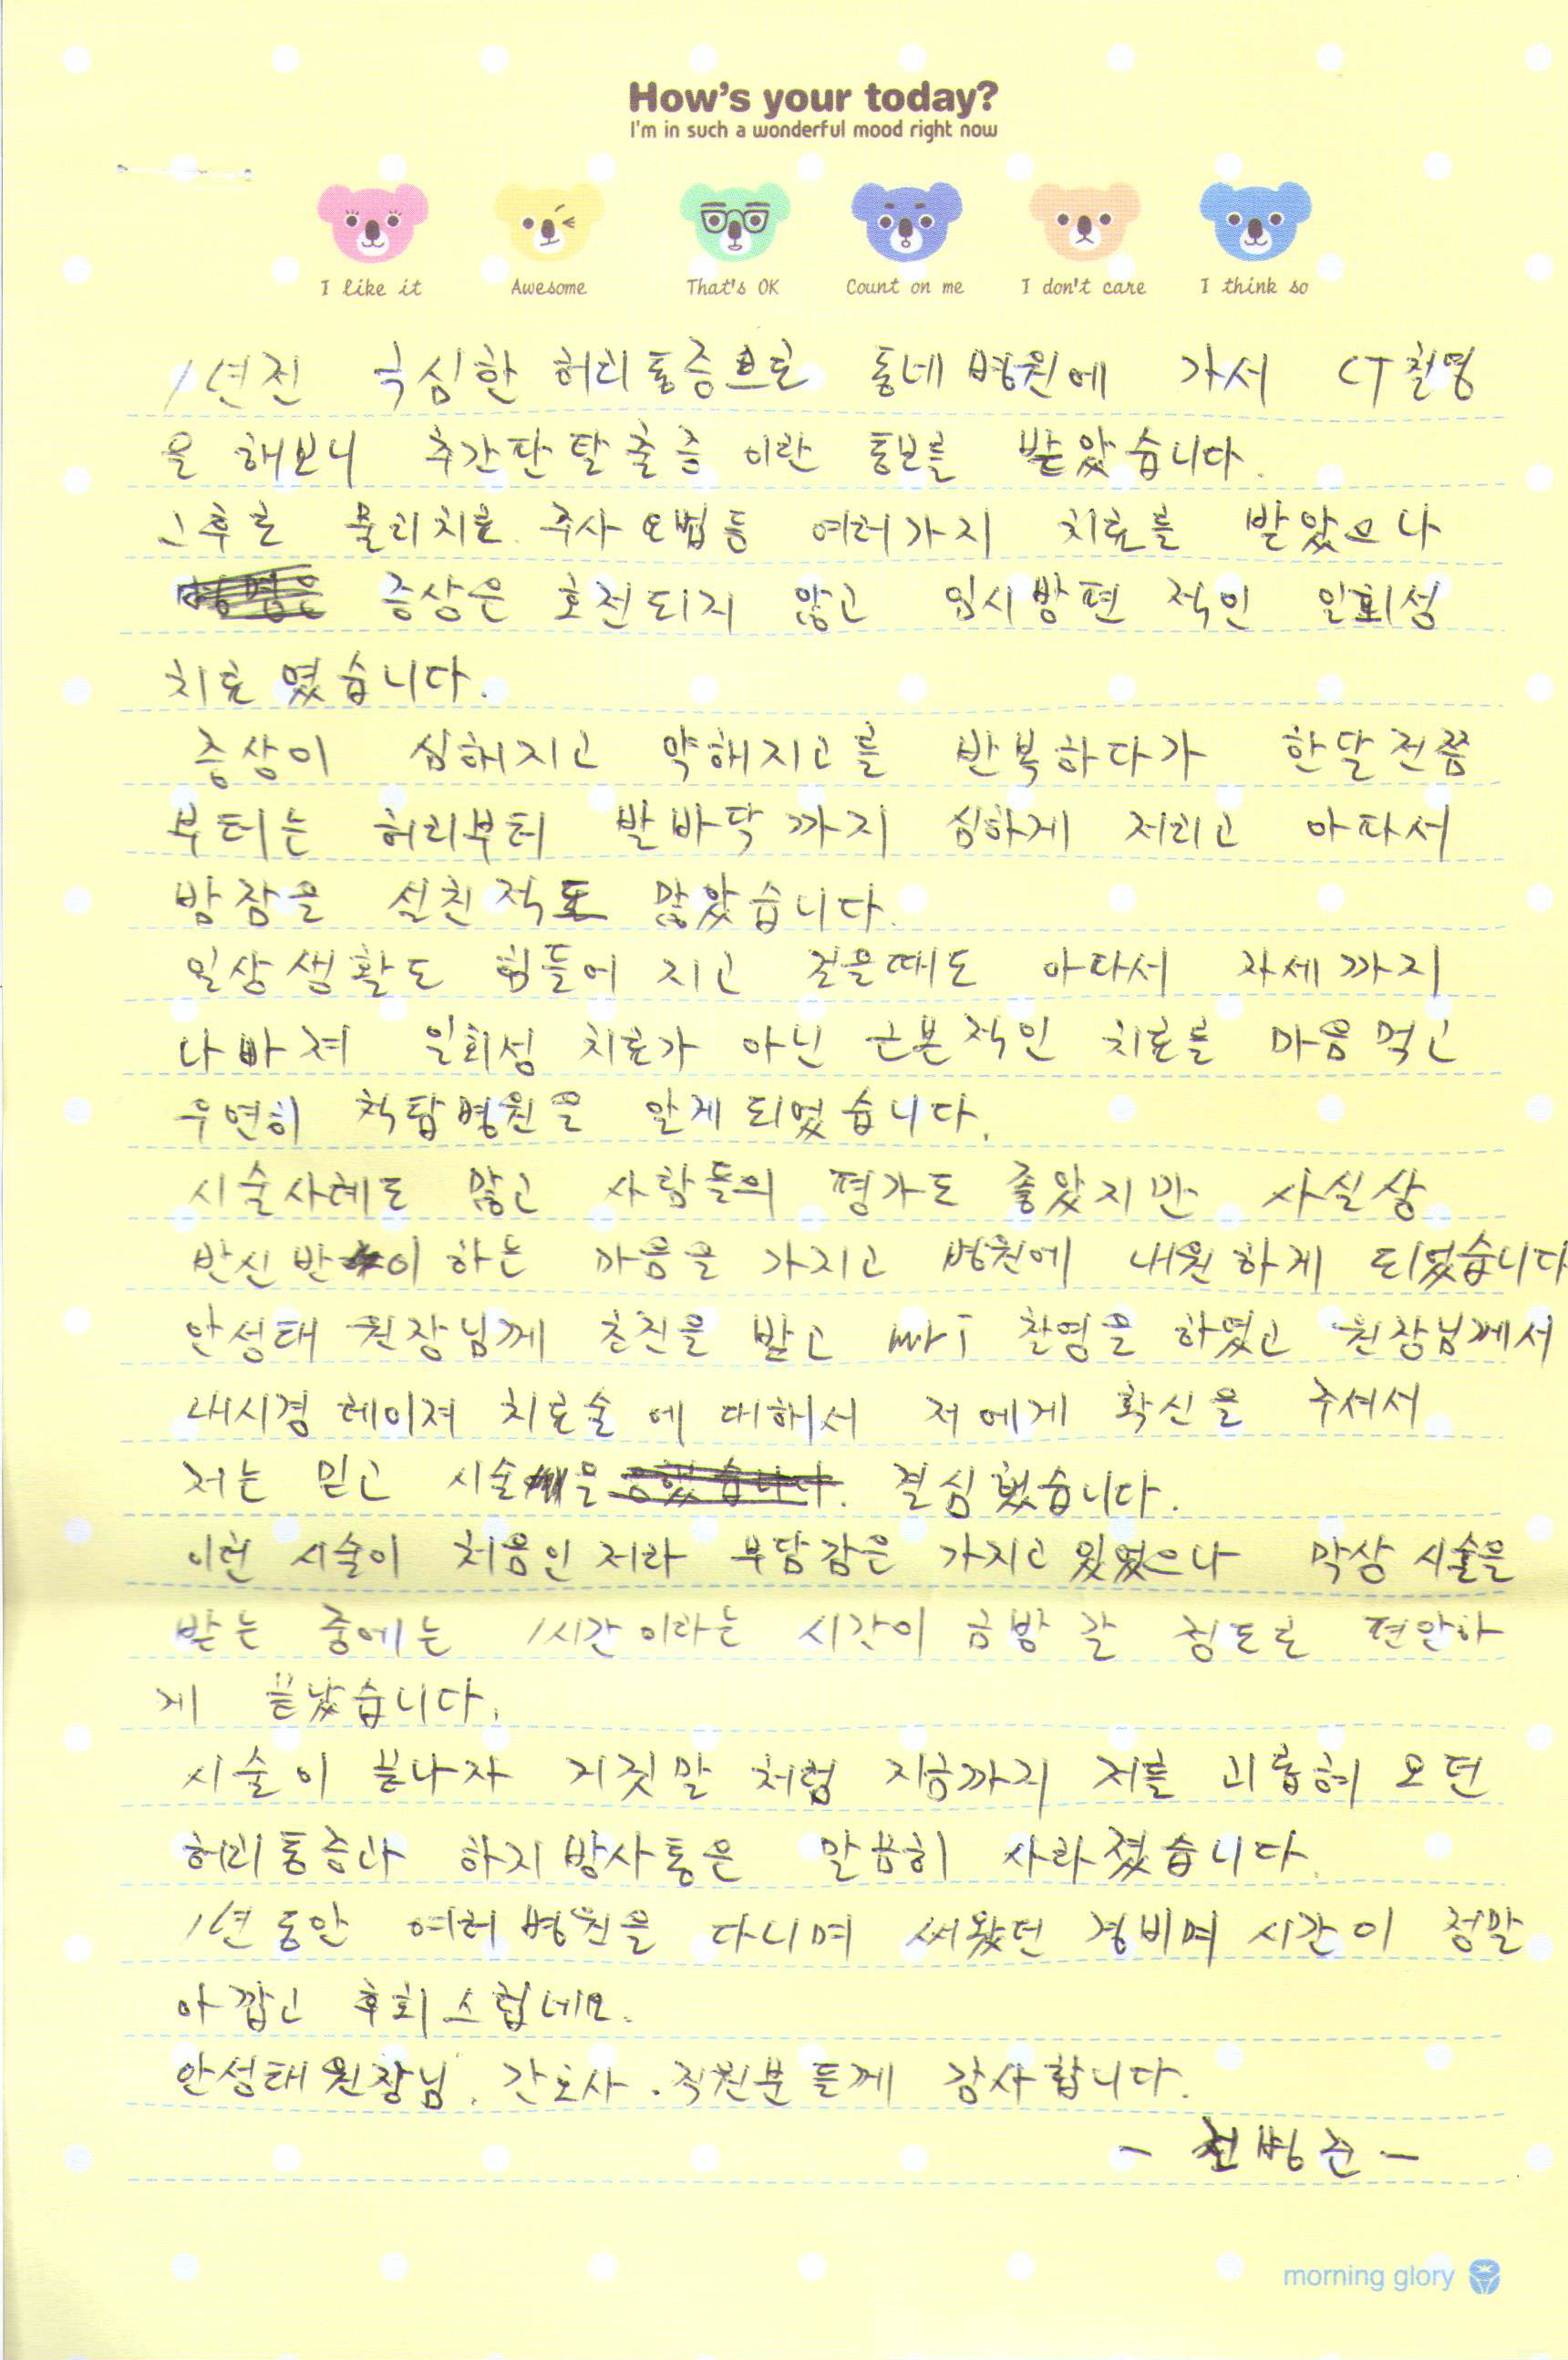 How's your today?
I'm in such a wonderful mood right now
I like it Awesome That's OK Count on me I don't care I think so
1년전 극심한 허리통증으로 동네병원에 가서 CT촬영
을 해보니 추간판탈출증 이란 통보를 받았습니다.
그후로 물리치료. 주사요법등 여러가지 치료를 받았으나
증상은 호전되지 않고 임시방편 적인 일회성
치료 였습니다.
증상이 심해지고 약해지고를 반복하다가 한달전쯤
부터는 허리부터 발바닥까지 심하게 저리고 아파서
밤잠을 설친적도 많았습니다.
일상생활도 힘들어 지고 걸을때도 아파서 자세까지
나빠져 일회성 치료가 아닌 근본적인 치료를 마음먹고
우연히 척탑병원을 알게되었습니다.
시술사례도 많고 사람들의 평가도 좋았지만 사실상
반신반이하는 마음을 가지고 병원에 내원하게 되었습니다
안성태 원장님께 초진을 받고 MRI 촬영을 하였고 원장님께서
내시경 레이져 치료술 에 대해서 저에게 확신을 주셔서
저는 믿고 시술을 결심했습니다.
이런 시술이 처음인 저라 부담감은 가지고 있었으나 막상 시술을
받는 중에는 1시간이라는 시간이 금방 갈 정도로 편안하
게 끝났습니다.
시술이 끝나자 거짓말 처럼 지금까지 저를 괴롭혀 오던
허리통증과 하지방사통은 말끔히 사라졌습니다.
1년동안 여러병원을 다니며 써왔던 경비며 시간이 정말
아깝고 후회스럽네요.
안성태원장님. 간호사. 직원분들께 감사합니다.
- 천병준 -
morning glory